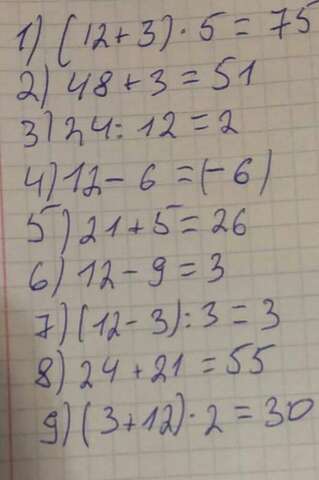 1) (12+3)·5=75
2) 48+3=51
3) 24:12=2
4) 12-6=(-6)
5) 21+5=26
6) 12-9=3
7) (12-3):3=3
8) 24+21=55
9) (3+12)·2=30